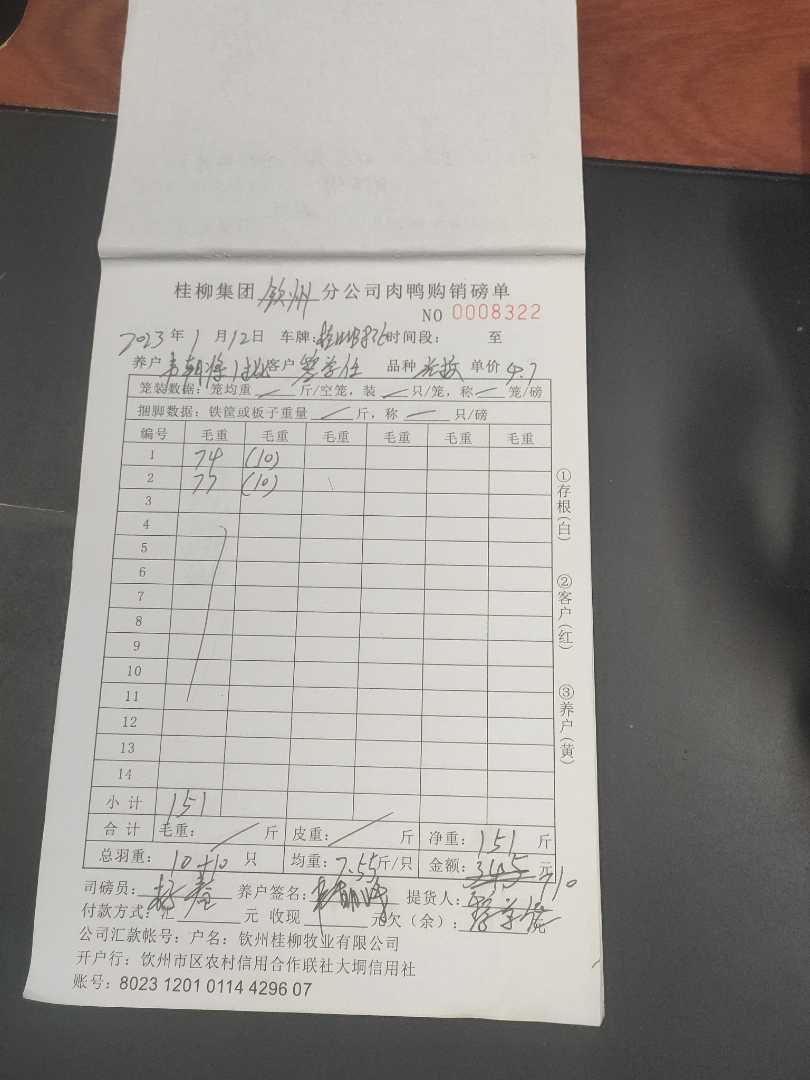 桂柳集团 钦州 分公司肉鸭购销磅单
NO 0008322
2023年1月12日 车牌: 时间段: 至
养户 客户 品种 单价 4.7
笼装数据: 笼均重 斤/空笼, 装 只/笼, 称 笼/磅
捆脚数据: 铁筐或板子重量 斤, 称 只/磅
编号 毛重 毛重 毛重 毛重 毛重 毛重
1 74 (10)
2 77 (10)
3
4
5
6
7
8
9
10
11
12
13
14
小计 151
合计 毛重: 斤 皮重: 斤 净重: 151 斤
总羽重: 10+10 只 均重: 7.55 斤/只 金额: 345 元 710
司磅员: 养户签名: 提货人:
付款方式: 汇 元 收现 元欠(余): 元
公司汇款帐号: 户名: 钦州桂柳牧业有限公司
开户行: 钦州市区农村信用合作联社大垌信用社
账号: 8023 1201 0114 4296 07
①存根(白)
②客户(红)
③养户(黄)